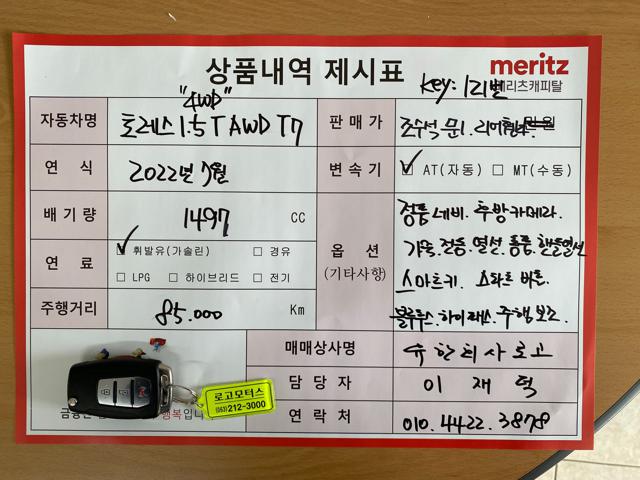 상품내역 제시표
meritz
메리츠캐피탈
"4WD"
Key: 121번
자동차명 토레스 1.5T AWD T7
판매가 조수석 문1. 리어휀다. 만원
연 식 2022년 7월
변속기 ☑ AT(자동) □ MT(수동)
배기량 1497 CC
옵 션
(기타사항)
정품네비. 후방카메라.
가죽. 전동. 열선. 통풍. 핸들열선
스마트키. 스타트 버튼.
블루투스. 하이패스. 주행보조.
연 료 ☑ 휘발유(가솔린) □ 경유
□ LPG □ 하이브리드 □ 전기
주행거리 85.000 Km
매매상사명 유한회사로고
담 당 자 이 재 덕
연 락 처 010. 4422. 3878
로고모터스
(063)212-3000
행복입니